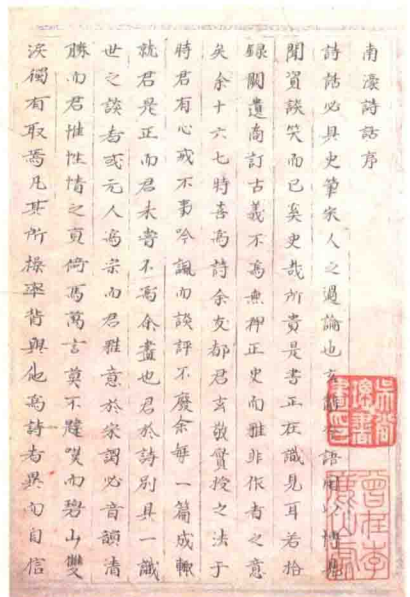 南濠詩話序
詩話必具史筆宋人之過論也玄辭冷語用以博見
聞資談笑而已奚史哉所貴是書正在識見耳若拾
錄闕遺商訂古義不為無裨正史而雅非作者之意
矣余十六七時喜為詩余友都君玄敬實授之法于
時君有心戒不事哦諷而談評不廢余每一篇成輒
就君是正而君未嘗不為余盡也君於詩別具一識
世之談者或元人為宗而君雅意於宋謂必音韻清
勝而君惟性情之真倚馬萬言莫不韙嘆而碧山雙
淚獨有取焉凡其所採率皆與他為詩者異而自信